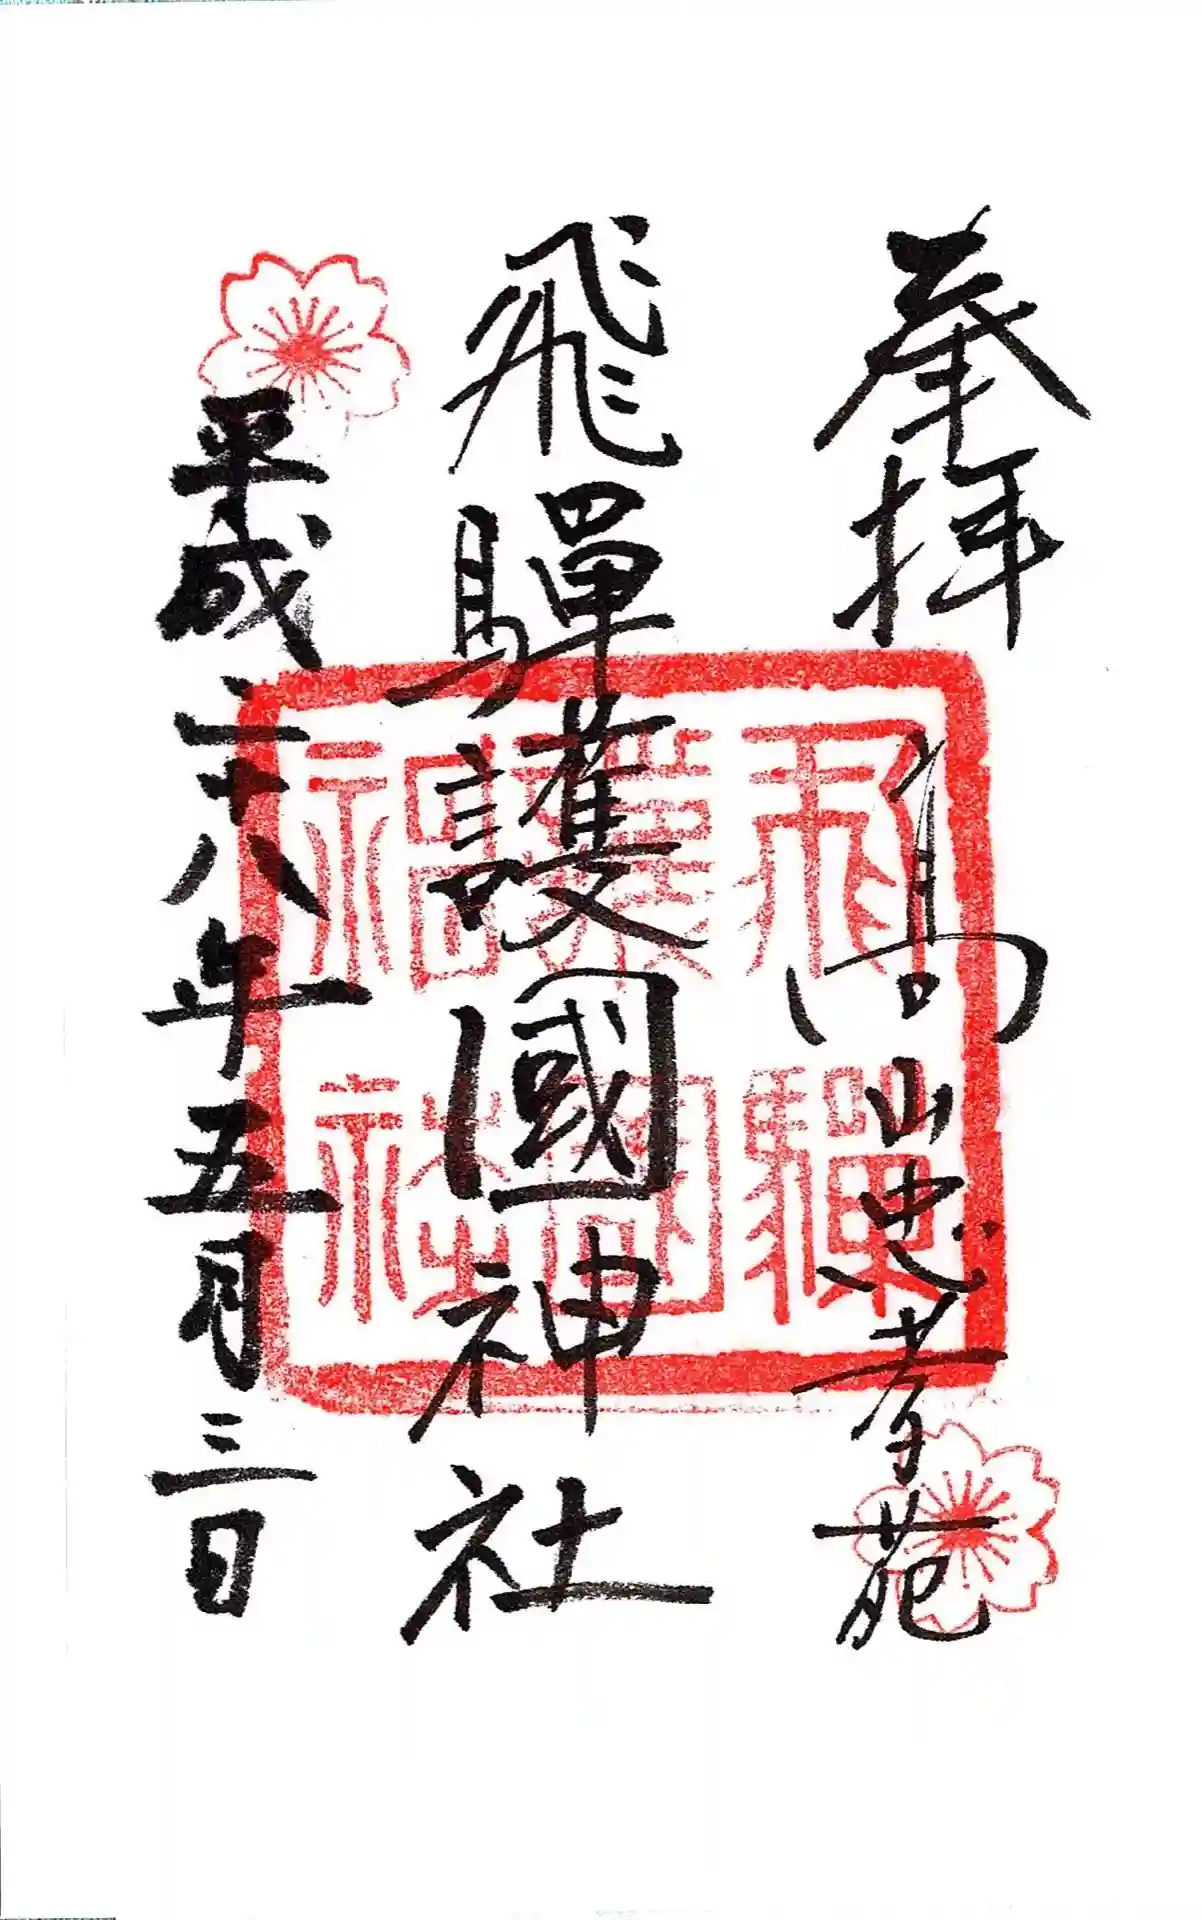 奉拝
高山忠孝苑
飛驒護國神社
平成二十八年五月三日
飛驒
護國
神社